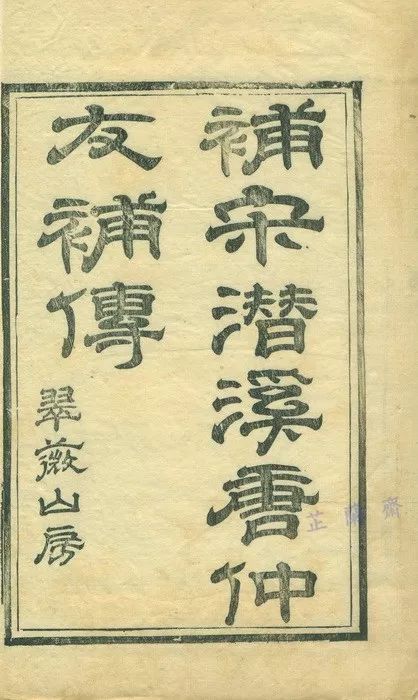 補宋潛溪唐仲
友補傳
翠薇山房
芷蘭齋